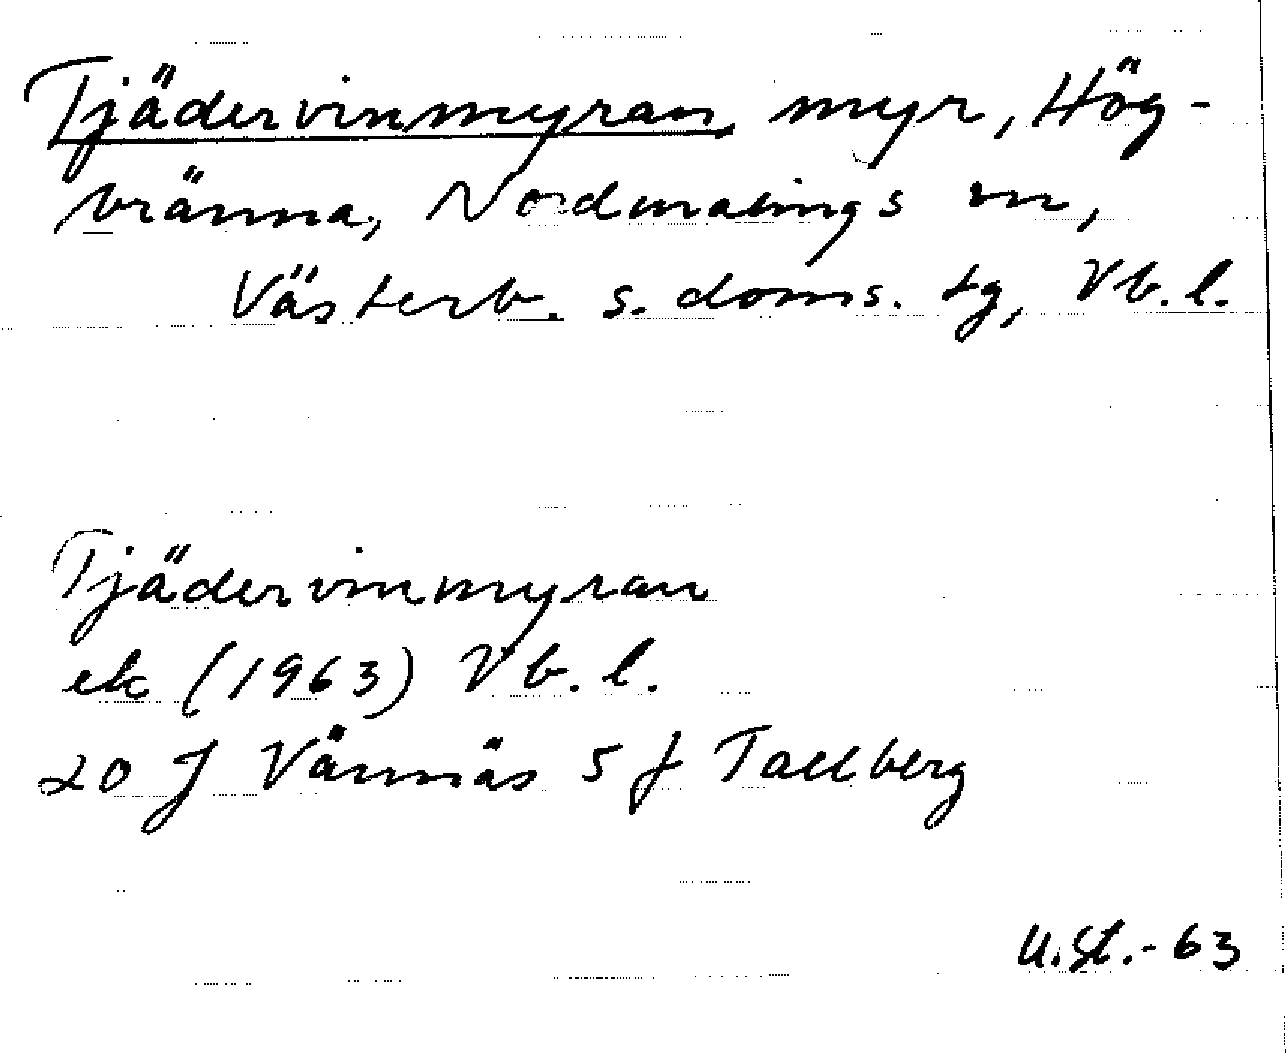 Tjädervinmyran, myr, Hög-
bränna, Nordmalings sn,
Västerb. s. doms. tg, Vb. l.
Tjädervinmyran
ek (1963) Vb. l.
20 J Vännäs 5 f Tallberg
U. St. - 63